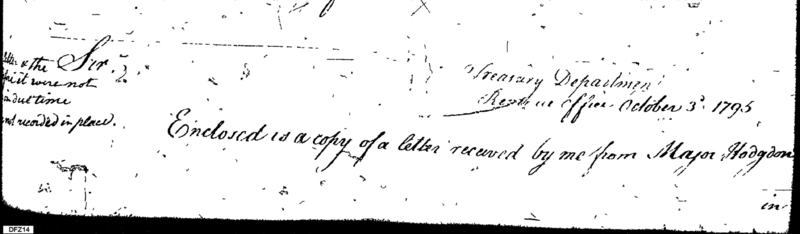 Treasury Department
Revenue Office October 3d. 1795
Sir.
& the
it were not
in due time
not recorded in place.
Enclosed is a copy of a letter received by me from Major Hodgdon
in
DFZ14